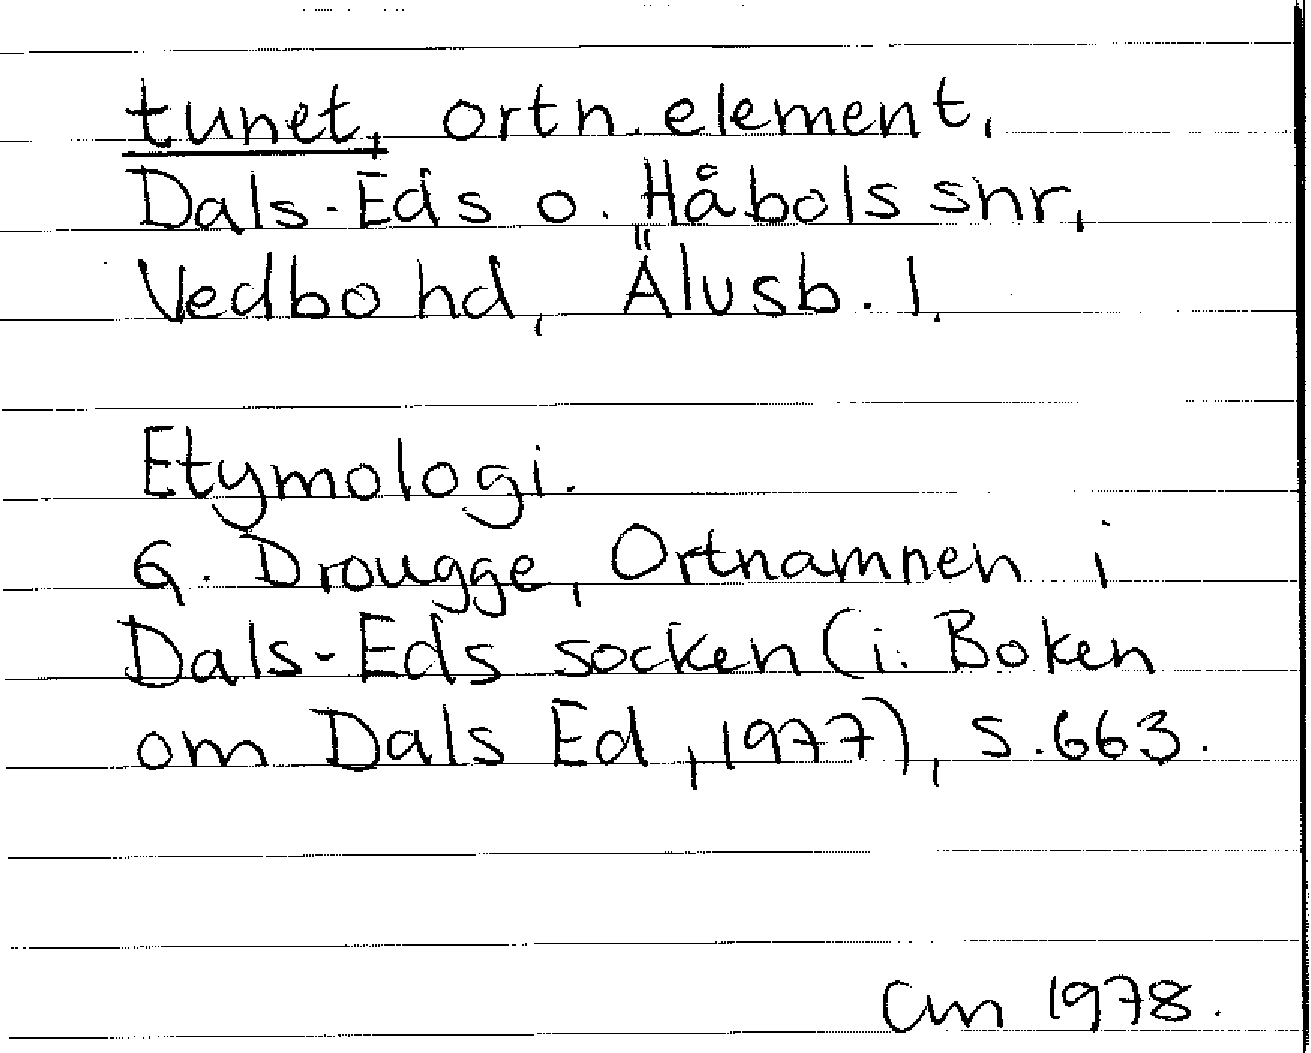 tunet, ortn. element,
Dals-Eds o. Håbols snr,
Vedbo hd, Älvsb. l.
Etymologi.
G. Drougge, Ortnamnen i
Dals-Eds socken (i: Boken
om Dals Ed, 1977), s. 663.
CM 1978.